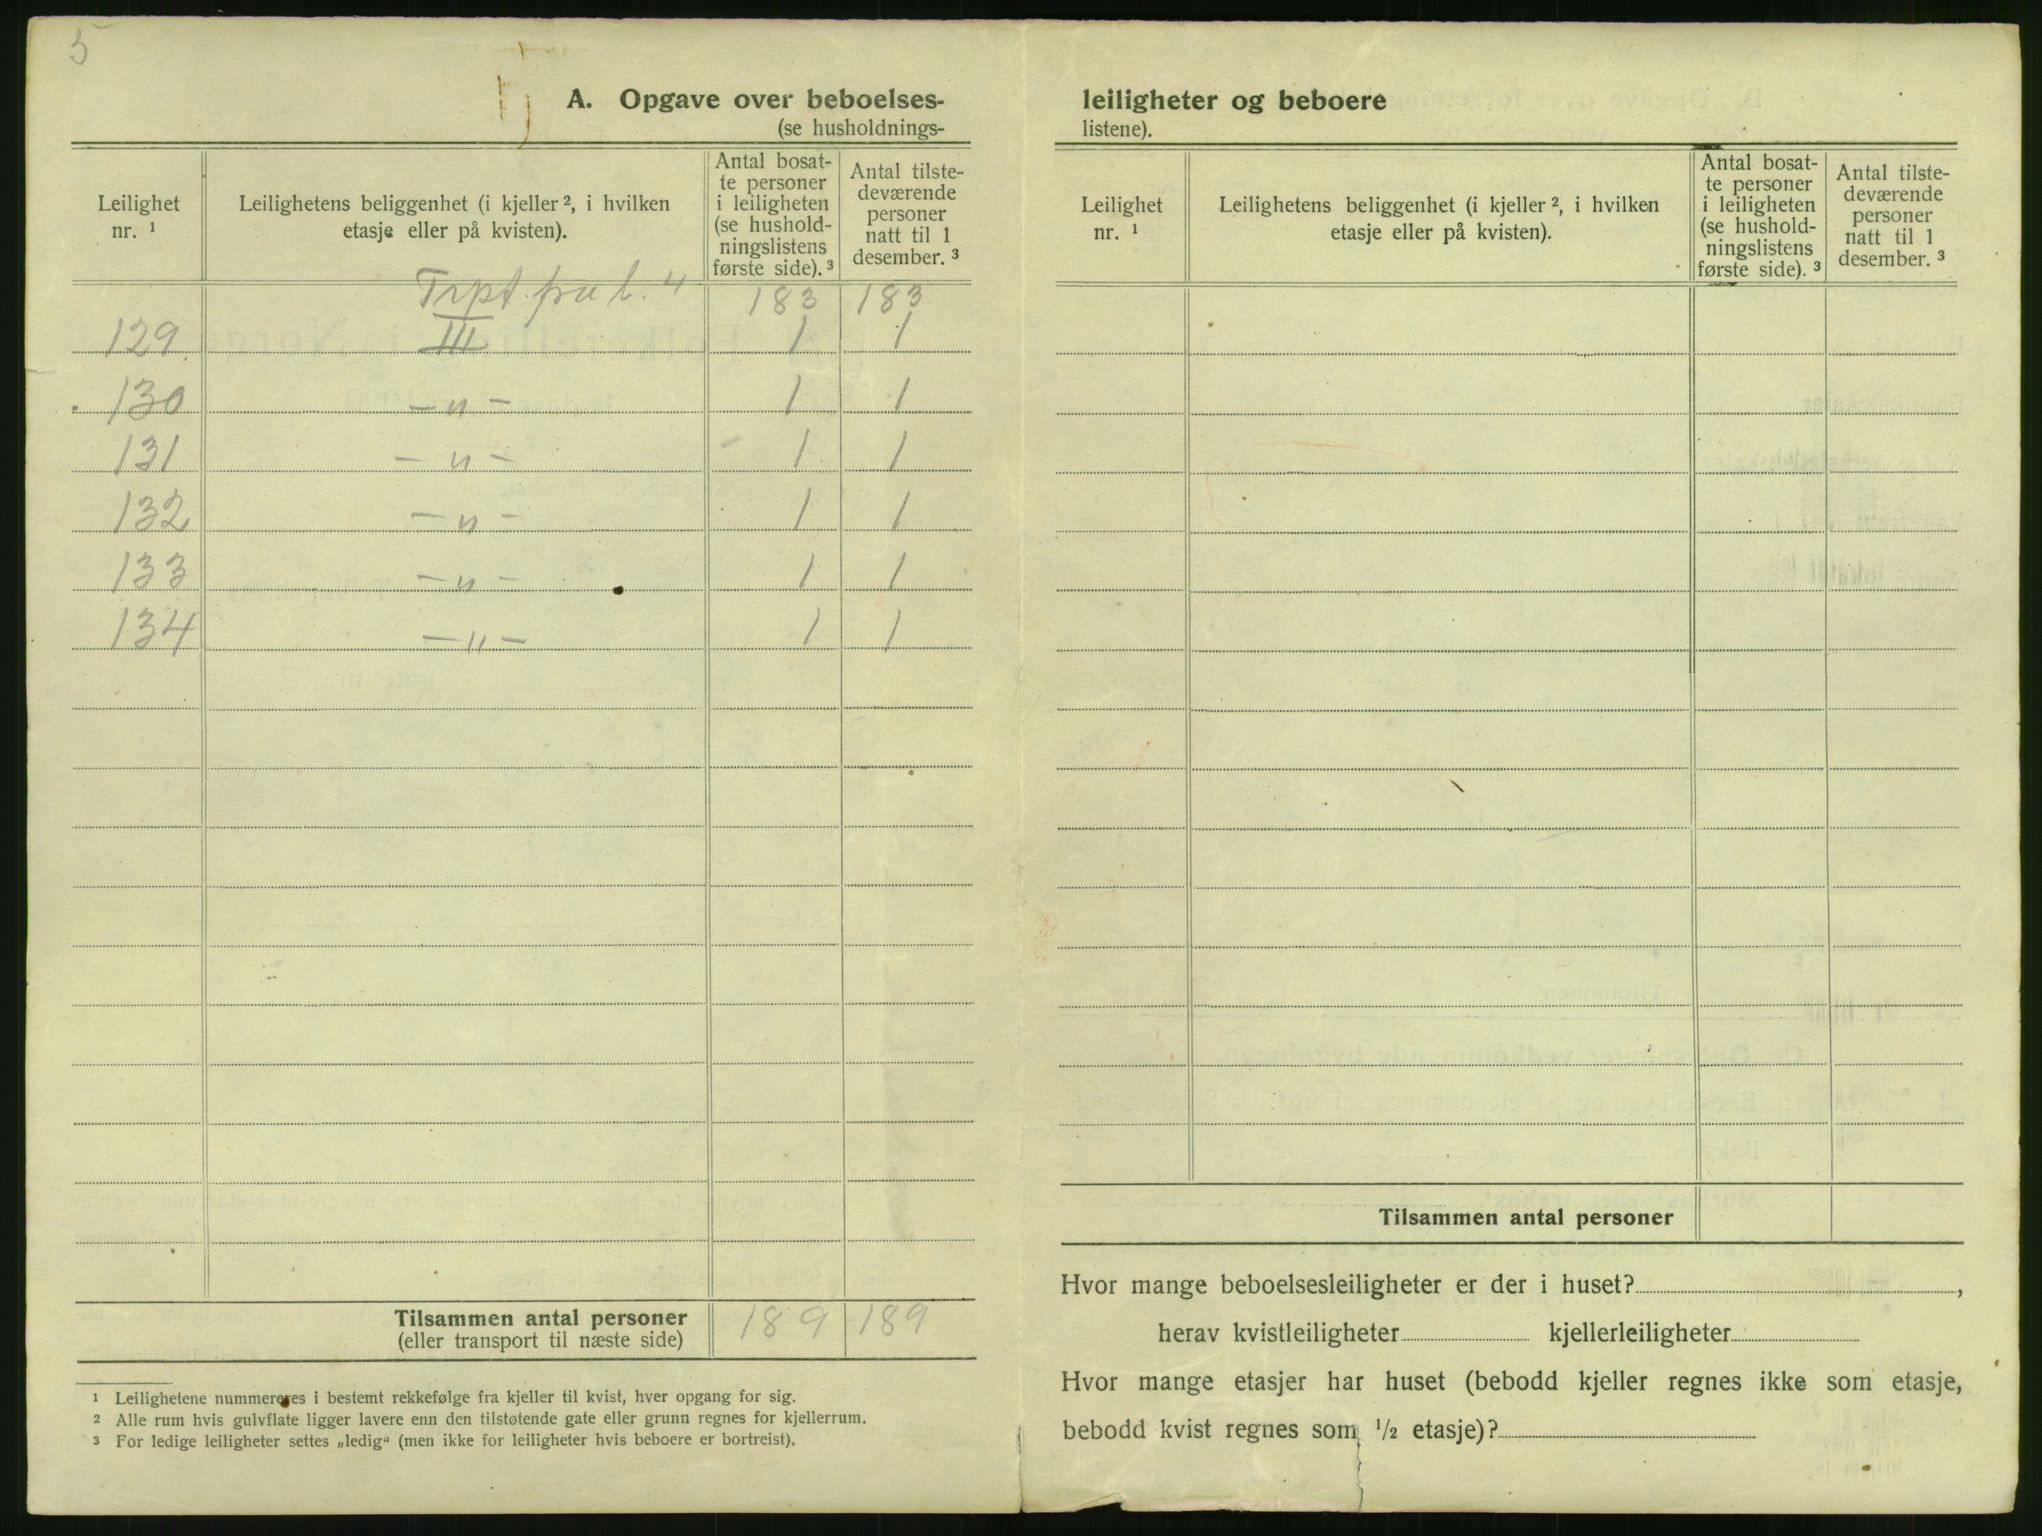 5
A. Opgave over beboelses-
(se husholdnings-
Leilighet nr. 1
Leilighetens beliggenhet (i kjeller 2, i hvilken etasje eller på kvisten).
Antal bosat-
te personer
i leiligheten
(se hushold-
ningslistens
første side). 3
Antal tilste-
deværende
personer
natt til 1
desember. 3
Trpt. fra l. 4 183 183
129 III 1 1
130 — " — 1 1
131 — " — 1 1
132 — " — 1 1
133 — " — 1 1
134 — " — 1 1
Tilsammen antal personer
(eller transport til næste side)
189 189
1 Leilighetene nummereres i bestemt rekkefølge fra kjeller til kvist, hver opgang for sig.
2 Alle rum hvis gulvflate ligger lavere enn den tilstøtende gate eller grunn regnes for kjellerrum.
3 For ledige leiligheter settes „ledig“ (men ikke for leiligheter hvis beboere er bortreist).
leiligheter og beboere
listene).
Leilighet nr. 1
Leilighetens beliggenhet (i kjeller 2, i hvilken etasje eller på kvisten).
Antal bosat-
te personer
i leiligheten
(se hushold-
ningslistens
første side). 3
Antal tilste-
deværende
personer
natt til 1
desember. 3
Tilsammen antal personer
Hvor mange beboelsesleiligheter er der i huset? ,
herav kvistleiligheter kjellerleiligheter
Hvor mange etasjer har huset (bebodd kjeller regnes ikke som etasje,
bebodd kvist regnes som 1/2 etasje)?